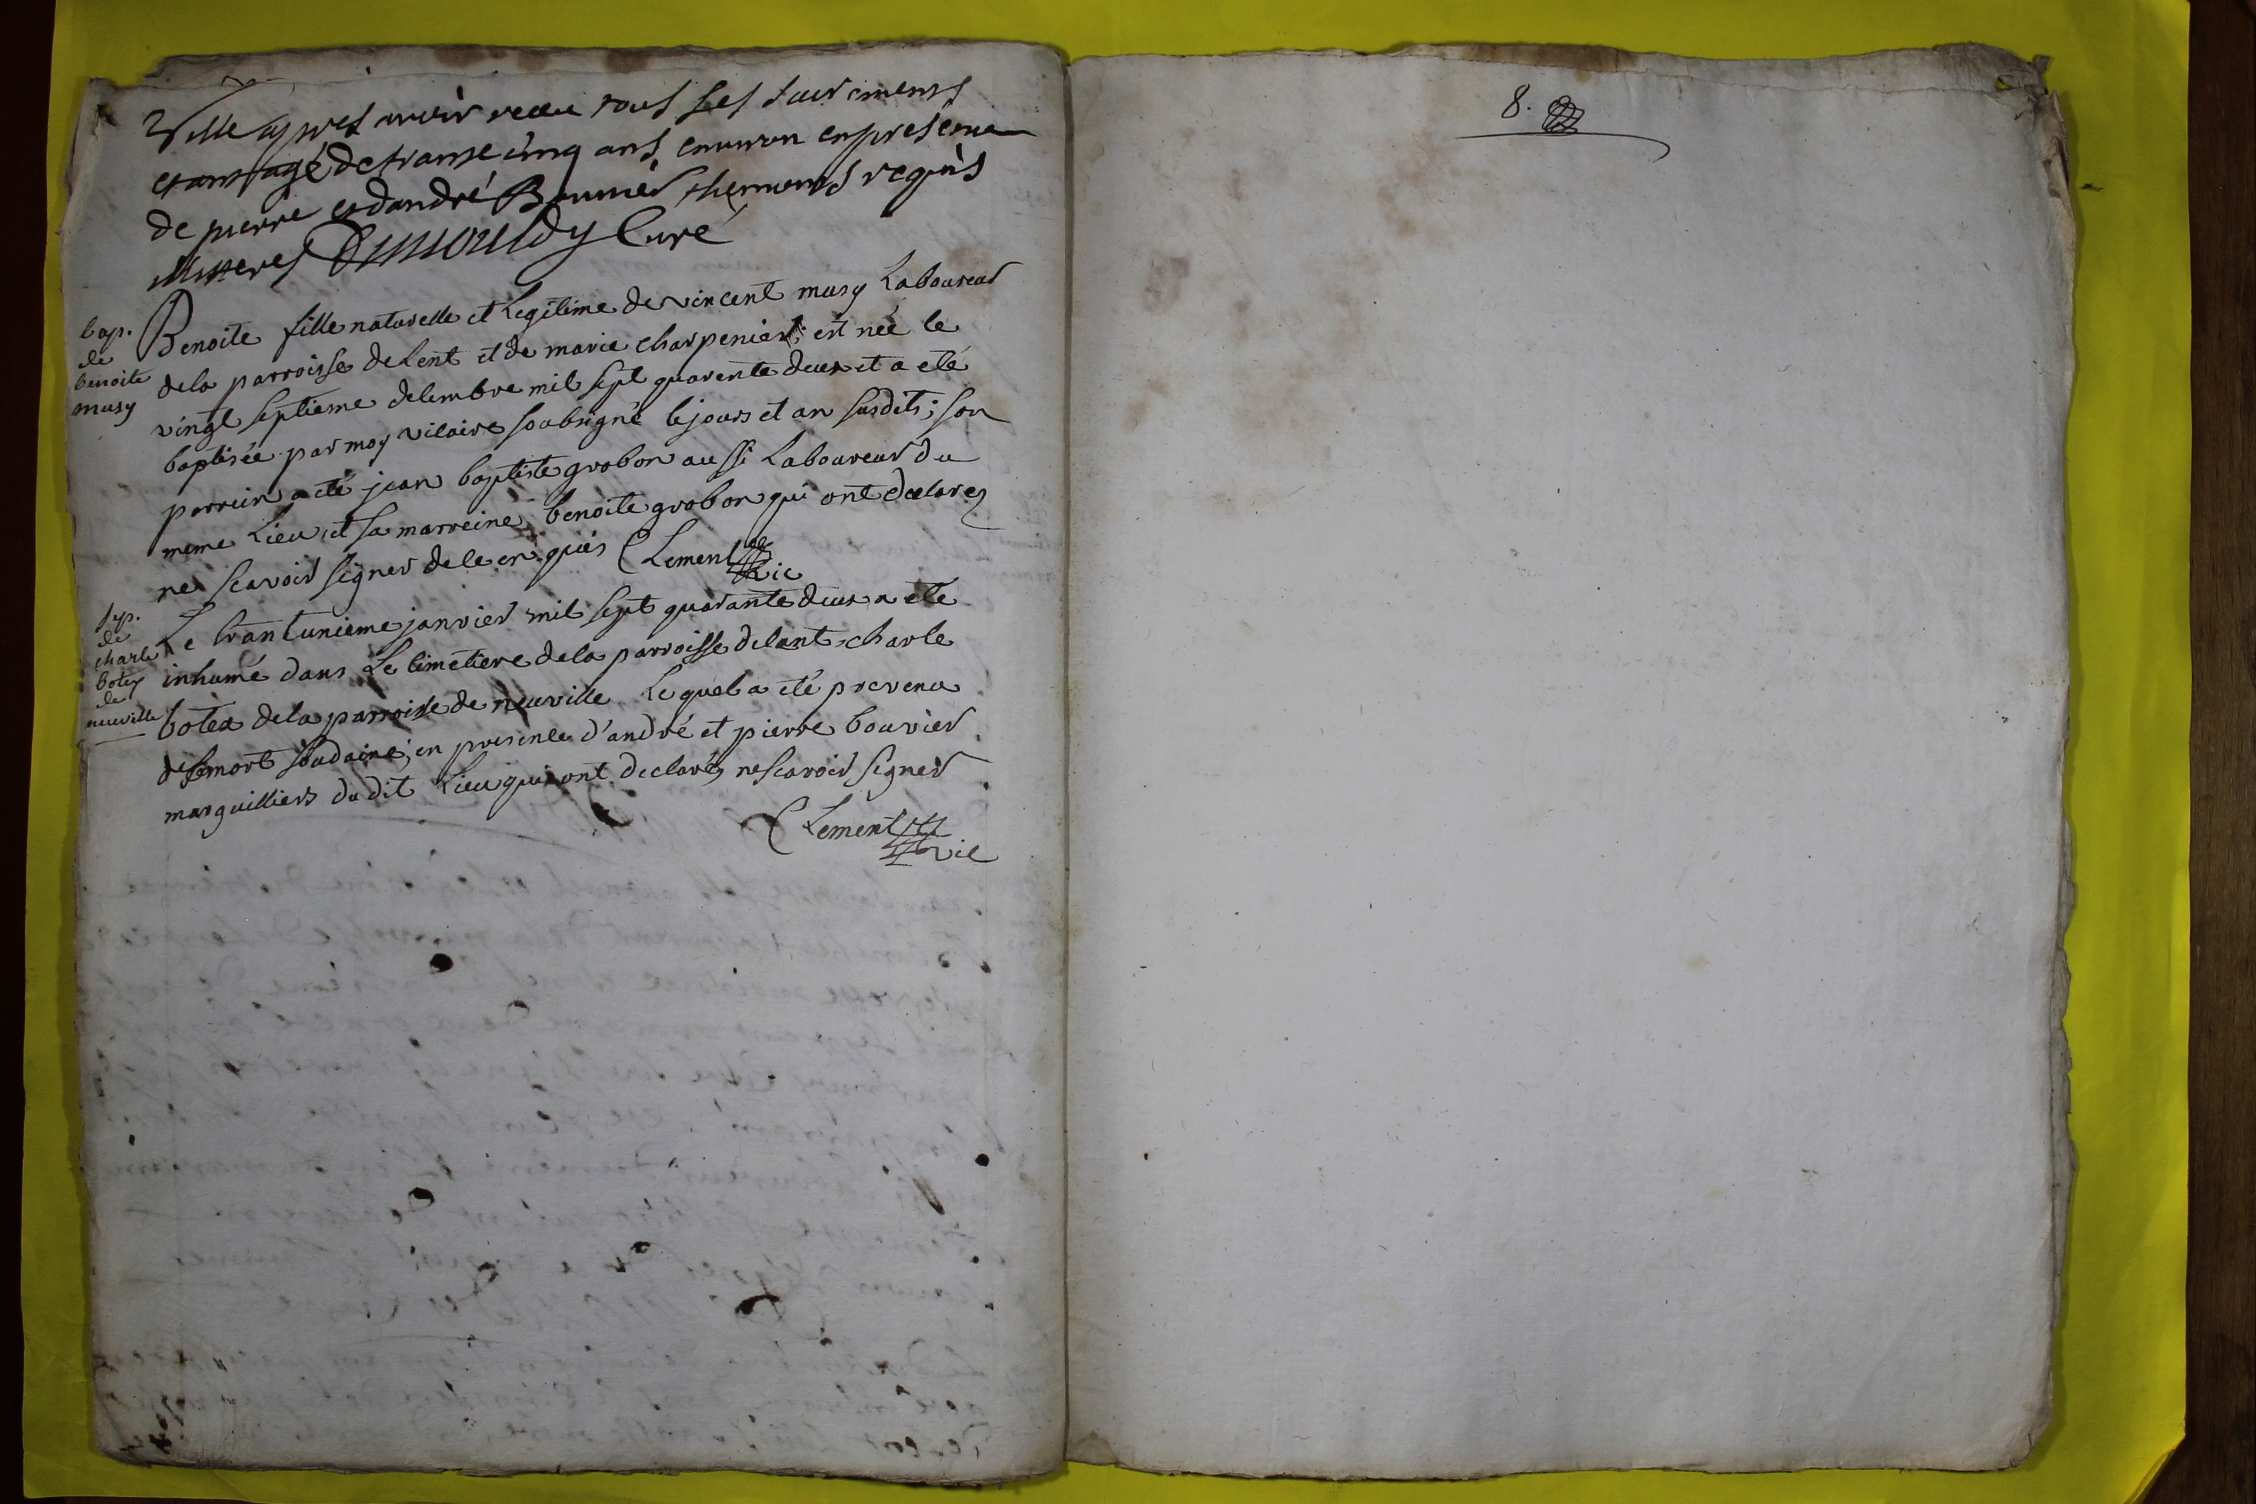 Ville apres avoir receu tous ses sacrements
etant agé de trante cinq ans environ en presence
de pierre et d'andré Bouvier temoins requis
illitterés Curé
bap.
de
benoite
musy
Benoite fille naturelle et Legitime de vincent musy Laboureur
de la parroisse de Lent et de marie charpenier; est neé le
vingt septieme decembre mil sept quarente deux et a eté
baptisée par moy vicaire soubsigné le jours et an susdits; son
parrein a eté jean baptiste grobon aussi Laboureur du
meme Lieu, et sa marreine benoite grobon qui ont declarez
ne scavoir signer de ce enquis Clement vic
sep.
de
charle
botex
de
neuville
Le trantunieme janvier mil sept quarante deux a eté
inhumé dans Le cimetiere de la parroisse de lant charle
botex de la parroisse de neuville Lequel a eté prevenu
de mort soudaine; en presence d'andré et pierre bouvier
marguilliers du dit Lieu qui ont declarez ne scavoir signer
Clement vic
8.